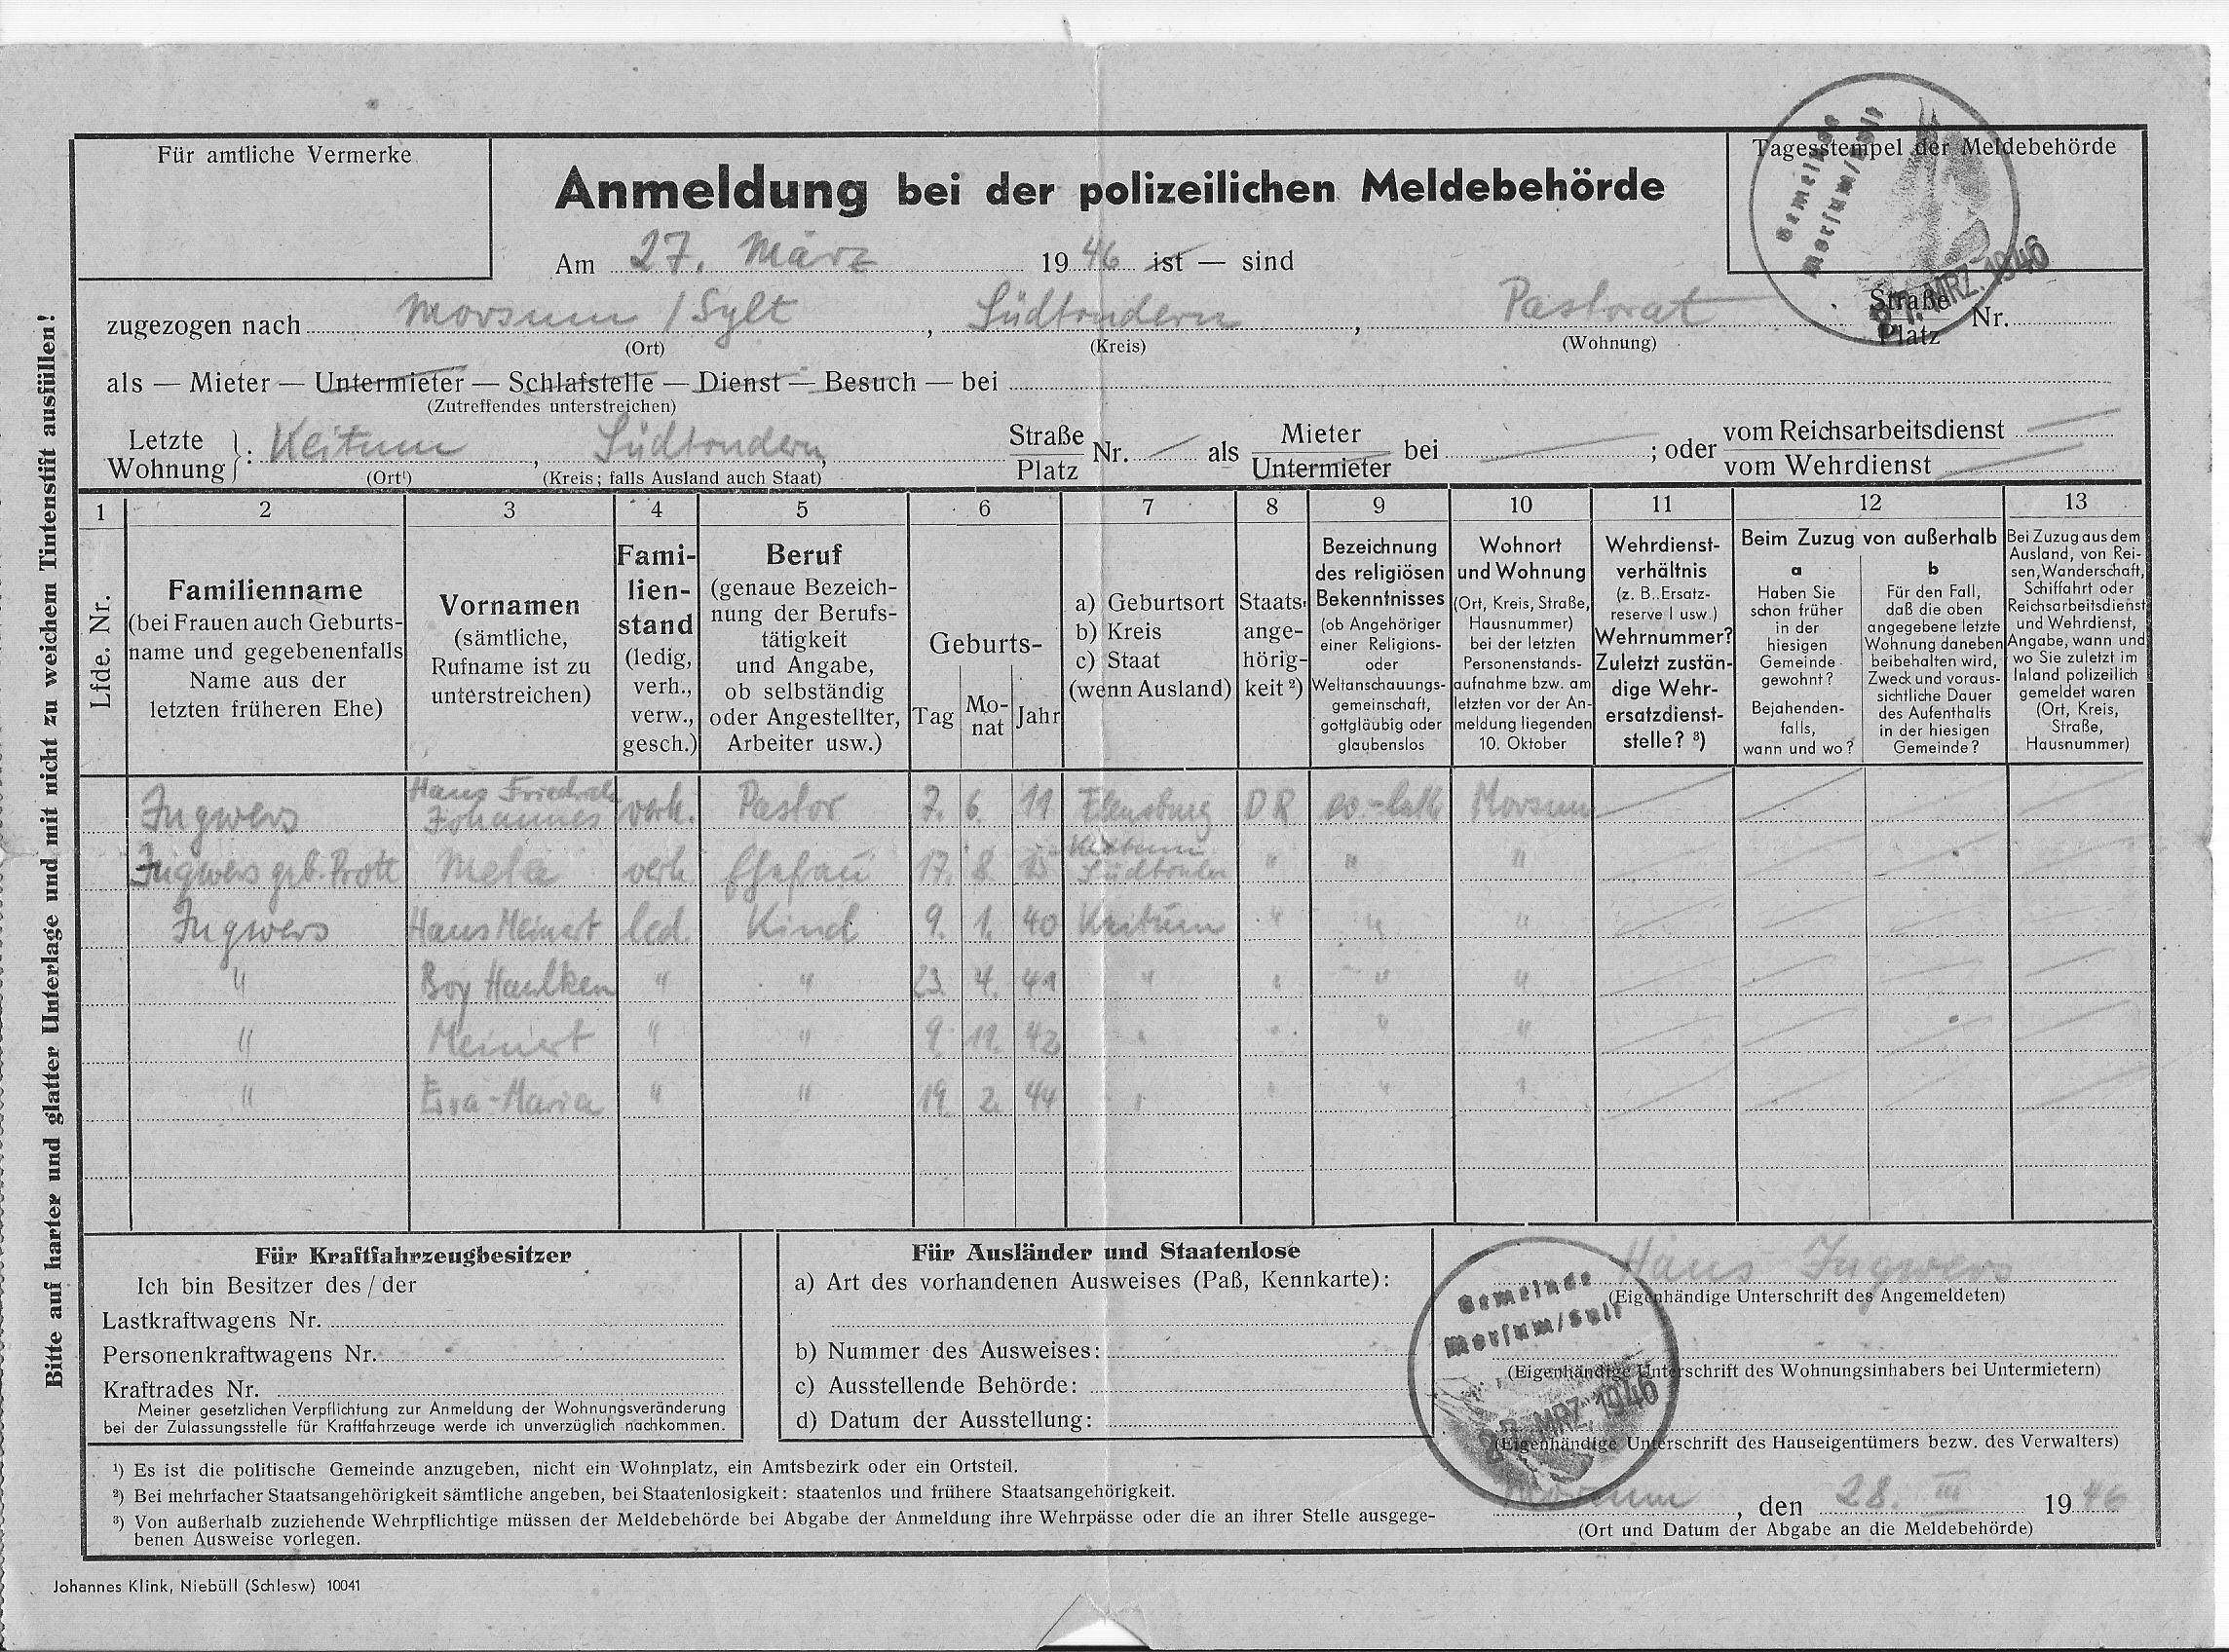 Für amtliche Vermerke
Tagesstempel der Meldebehörde
Gemeinde
Morsum/Sylt
27. MRZ. 1946
Anmeldung bei der polizeilichen Meldebehörde
Am 27. März 1946 ist — sind
zugezogen nach Morsum / Sylt, Südtondern, Pastorat Straße Platz Nr.
(Ort) (Kreis) (Wohnung)
als — Mieter — Untermieter — Schlafstelle — Dienst — Besuch — bei
(Zutreffendes unterstreichen)
Letzte Wohnung: Keitum, Südtondern, Straße Platz Nr. als Mieter Untermieter bei ; oder vom Reichsarbeitsdienst vom Wehrdienst
(Ort¹) (Kreis; falls Ausland auch Staat)
1 2 3 4 5 6 7 8 9 10 11 12 13
Lfde. Nr.
Familienname
(bei Frauen auch Geburts-
name und gegebenenfalls
Name aus der
letzten früheren Ehe)
Vornamen
(sämtliche,
Rufname ist zu
unterstreichen)
Fami-
lien-
stand
(ledig,
verh.,
verw.,
gesch.)
Beruf
(genaue Bezeich-
nung der Berufs-
tätigkeit
und Angabe,
ob selbständig
oder Angestellter,
Arbeiter usw.)
Geburts-
Tag Mo-
nat Jahr
a) Geburtsort
b) Kreis
c) Staat
(wenn Ausland)
Staats-
ange-
hörig-
keit ²)
Bezeichnung
des religiösen
Bekenntnisses
(ob Angehöriger
einer Religions-
oder
Weltanschauungs-
gemeinschaft,
gottgläubig oder
glaubenslos
Wohnort
und Wohnung
(Ort, Kreis, Straße,
Hausnummer)
bei der letzten
Personenstands-
aufnahme bzw. am
letzten vor der An-
meldung liegenden
10. Oktober
Wehrdienst-
verhältnis
(z. B. Ersatz-
reserve I usw.)
Wehrnummer?
Zuletzt zustän-
dige Wehr-
ersatzdienst-
stelle? ³)
Beim Zuzug von außerhalb
a
Haben Sie
schon früher
in der
hiesigen
Gemeinde
gewohnt?
Bejahenden-
falls,
wann und wo?
b
Für den Fall,
daß die oben
angegebene letzte
Wohnung daneben
beibehalten wird,
Zweck und voraus-
sichtliche Dauer
des Aufenthalts
in der hiesigen
Gemeinde?
Bei Zuzug aus dem
Ausland, von Rei-
sen, Wanderschaft,
Schiffahrt oder
Reichsarbeitsdienst
und Wehrdienst,
Angabe, wann und
wo Sie zuletzt im
Inland polizeilich
gemeldet waren
(Ort, Kreis,
Straße,
Hausnummer)
Ingwers Hans Friedrich Johannes verh. Pastor 7. 6. 11 Flensburg DR ev.-luth Morsum
Ingwers geb. Prott Meta verh. Ehefrau 17. 8. 15 Keitum Südtondern " " "
Ingwers Hans Meinert led. Kind 9. 1. 40 Keitum " " "
" Boy Haulken " " 23. 4. 41 " " " "
" Meinert " " 9. 11. 42 " " " "
" Eva-Maria " " 19. 2. 44 " " " "
Für Kraftfahrzeugbesitzer
Ich bin Besitzer des / der
Lastkraftwagens Nr.
Personenkraftwagens Nr.
Kraftrades Nr.
Meiner gesetzlichen Verpflichtung zur Anmeldung der Wohnungsveränderung
bei der Zulassungsstelle für Kraftfahrzeuge werde ich unverzüglich nachkommen.
Für Ausländer und Staatenlose
a) Art des vorhandenen Ausweises (Paß, Kennkarte):
b) Nummer des Ausweises:
c) Ausstellende Behörde:
d) Datum der Ausstellung:
Hans Ingwers
(Eigenhändige Unterschrift des Angemeldeten)
(Eigenhändige Unterschrift des Wohnungsinhabers bei Untermietern)
(Eigenhändige Unterschrift des Hauseigentümers bezw. des Verwalters)
Gemeinde
Morsum/Sylt
27. MRZ. 1946
Morsum, den 28. III 1946
(Ort und Datum der Abgabe an die Meldebehörde)
¹) Es ist die politische Gemeinde anzugeben, nicht ein Wohnplatz, ein Amtsbezirk oder ein Ortsteil.
²) Bei mehrfacher Staatsangehörigkeit sämtliche angeben, bei Staatenlosigkeit: staatenlos und frühere Staatsangehörigkeit.
³) Von außerhalb zuziehende Wehrpflichtige müssen der Meldebehörde bei Abgabe der Anmeldung ihre Wehrpässe oder die an ihrer Stelle ausgege-
benen Ausweise vorlegen.
Johannes Klink, Niebüll (Schlesw) 10041
Bitte auf harter und glatter Unterlage und mit nicht zu weichem Tintenstift ausfüllen!